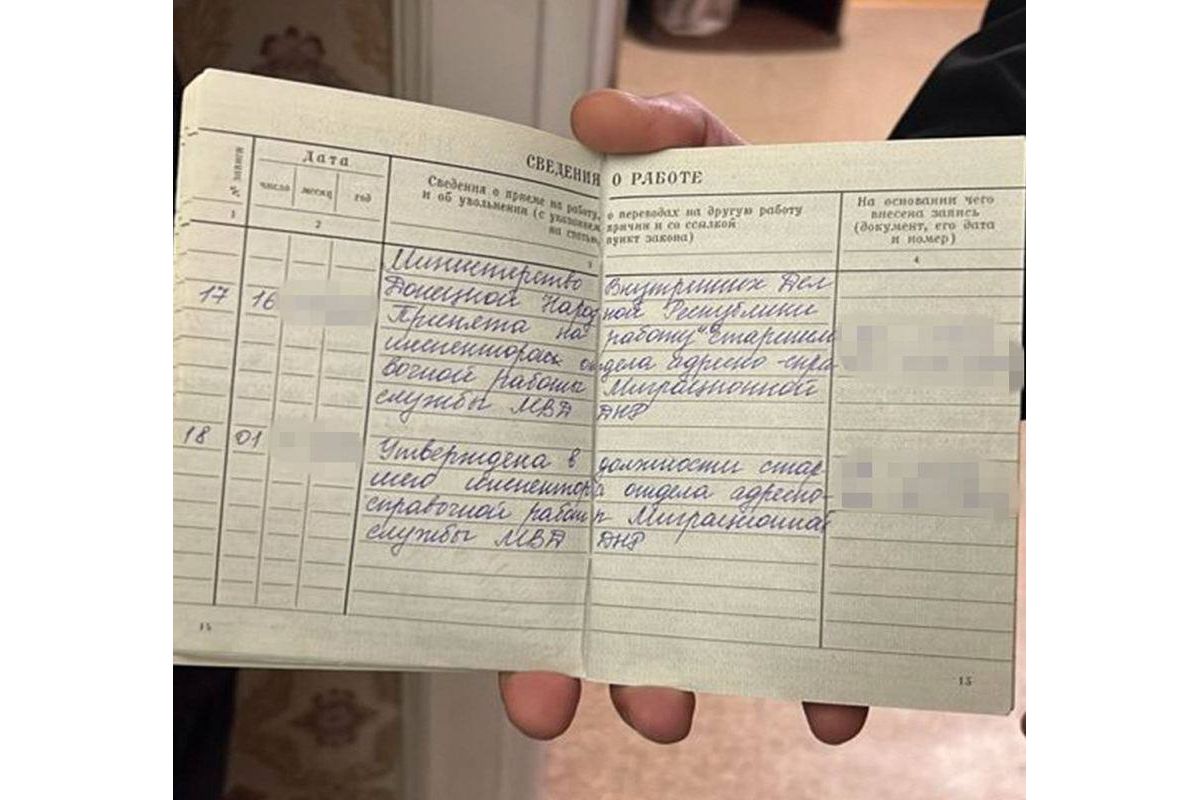 СВЕДЕНИЯ О РАБОТЕ
№ записи
Дата
число месяц год
Сведения о приеме на работу, о переводах на другую работу
и об увольнении (с указанием причин и со ссылкой
на статью, пункт закона)
На основании чего
внесена запись
(документ, его дата
и номер)
1 2 3 4
Министерство Внутренних Дел
Донецкой Народной Республики
17 16 Принята на работу старшим
инспектором отдела адресно-спра
вочной работы Миграционной
службы МВД ДНР
18 01 Утверждена в должности стар
шего инспектора отдела адресно-
справочной работы Миграционной
службы МВД ДНР
15 15